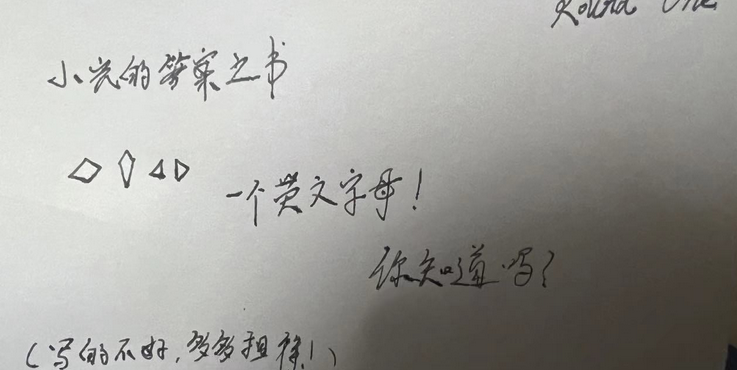 Round One
小光的答案之书
一个英文字母!
你知道吗?
(写的不好,多多担待!)